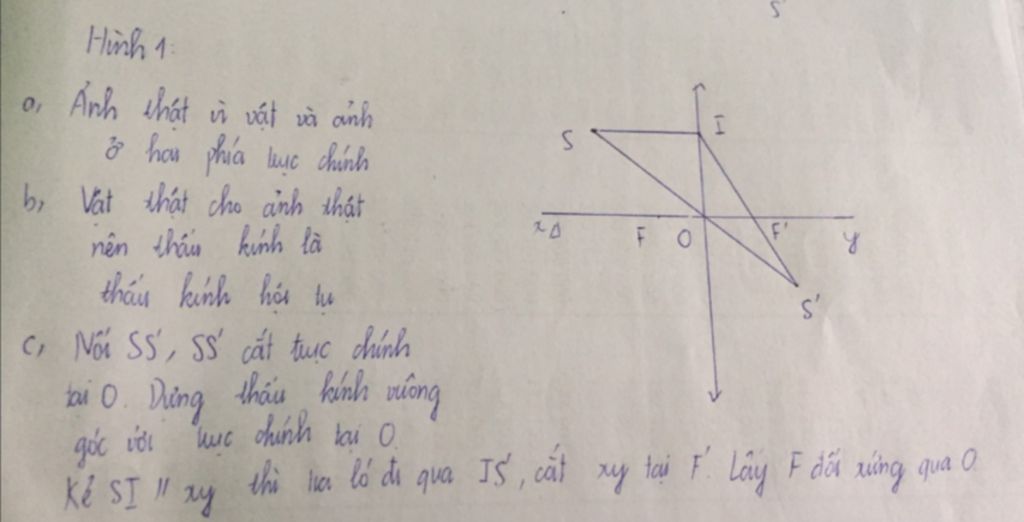 S'
Hình 1:
a, Ảnh thật vì vật và ảnh
ở hai phía trục chính
b, Vật thật cho ảnh thật
nên thấu kính là
thấu kính hội tụ
c, Nối SS', SS' cắt trục chính
tại O. Dựng thấu kính vuông
góc với trục chính tại O.
Kẻ SI // xy thì tia ló đi qua IS', cắt xy tại F'. Lấy F đối xứng qua O
S
I
x Δ
F
O
F'
y
S'